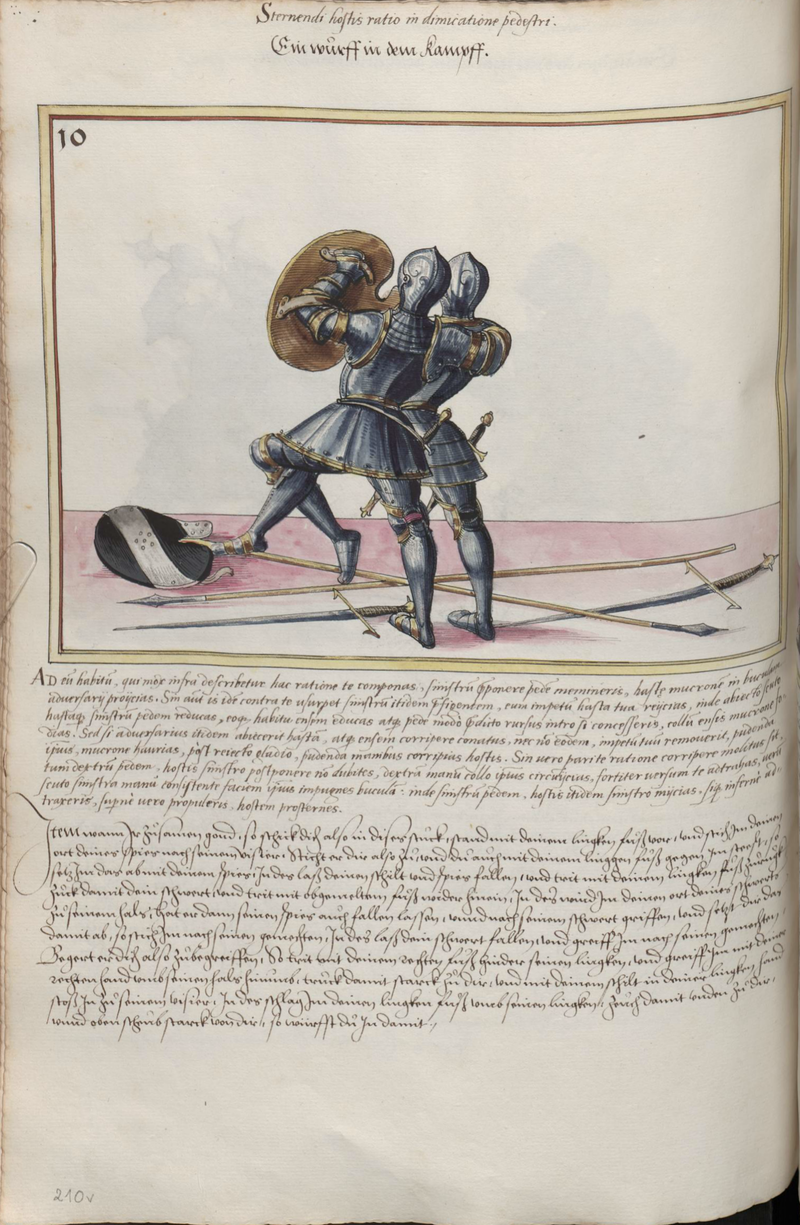 Sternendi hostis ratio in dimicatione pedestri.
Ein wurff in dem Kampff.
10
AD eū habitū, qui mox infra describetur hac ratione te componas, sinistrū p̄ponere pede memineris, hastę mucrone in buculam
adversarij proijcias. Sin aūt is idē contra te usurpet sinistrū itidem p̄ponentem, eum impetū hasta tua reijcias, inde abiecto scuto
hastaq, sinistrū pedem reducas, eoq habitu ensim educas atq pede modo p̄dicto rursus intro si concesseris, collū ensis mucrone
dias. Sed si adversarius itidem abiecerit hastā, atq ensem corripere conatus, nec nō eodem, impetū tuū removerit, pudenda
ipius, mucrone haurias, post reiecto gladio, pudenda manibus corripias hostis. Sin vero pari te ratione corripere molitus sit,
tum dextrū pedem, hostis sinistro postponere nō dubites, dextra manū collo ipius circūijcias, fortiter versum te adtrahas, verū
scuto sinistra manu consistente faciem ipius impugnes bucula: inde sinistrū pedem, hostis itidem sinistro inijcias, siq inferne ad
traxeris, supne vero propuleris, hostem prosternes.
Item wann Ir zusamen gond, so schick dich also in dises stuck, stand mit deinem lingken fuß vor, und stich Im deinen
ort deines spies nach seinem visier, Sticht er dir also zu, und dir auch mit deinem linggen fuß gegen Im steest, so
setz Im das ab mit deinem spies, In des laß deinen schilt und spies fallen, und trit mit deinem lingken fuß zurugk
Zuck damit dein schwert, und trit mit obgemeltem fuß wider hinein, In des wind Im deinen ort deines schwerts
zu seinem hals, Hat er dann seinen spies auch fallen lassen, unnd nach seinem schwert griffen, und setzt dir das
damit ab, so stich Im nach seinen gemechten, In des laß dein schwert fallen, und greiff Im nach seinen gemechten,
Begert er dich also zubegreiffen, So trit mit deinem rechten fuß hinder seinen lingken, und greiff Im mit deiner
rechten hand umb seinen hals hinumb, truck damit starck zu dir, und mit deinem schilt in deiner lingken hand
stoß In zu seinem visier, In des schlag Im deinen lingken fuß umb seinen lingken, zeuch damit unden zu dir,
unnd oben scheub starck von dir, so wurffst du In damit.
210v